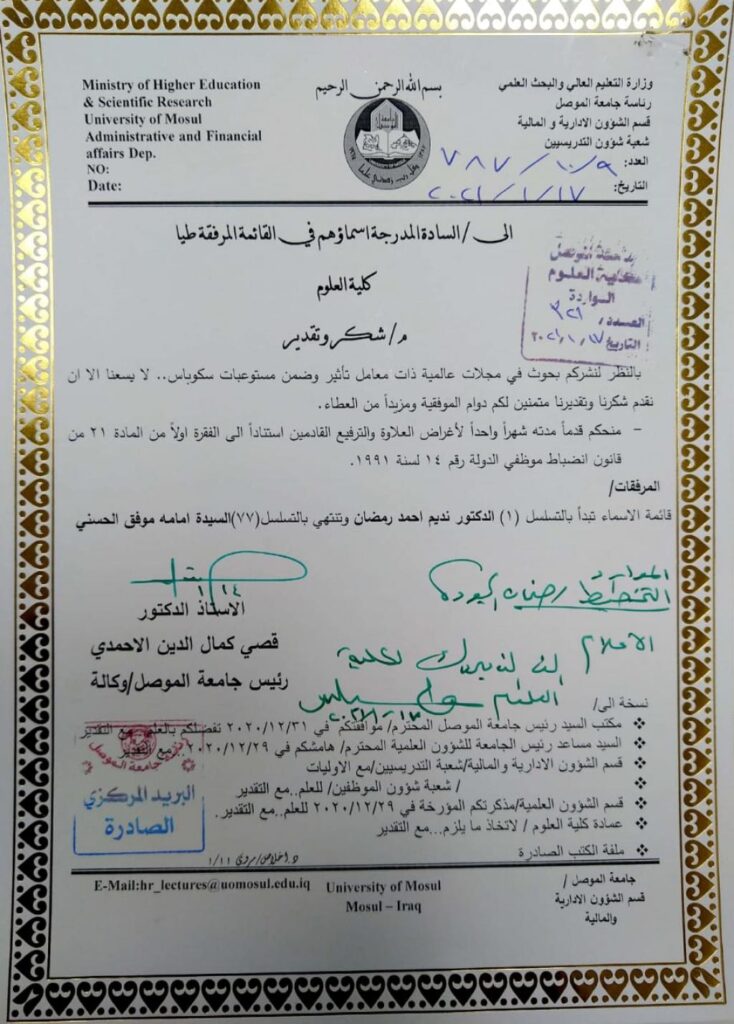 Ministry of Higher Education
& Scientific Research
University of Mosul
Administrative and Financial
affairs Dep.
NO:
Date:
بسم الله الرحمن الرحيم
وزارة التعليم العالي والبحث العلمي
رئاسة جامعة الموصل
قسم الشؤون الادارية و المالية
شعبة شؤون التدريسيين
العدد: ٧٨٧/١٠/٩
التاريخ: ٢٠٢١/١/١٧
الى / السادة المدرجة اسماؤهم في القائمة المرفقة طيا
كلية العلوم
م/ شكر وتقدير
جامعة الموصل
كلية العلوم
الواردة
العدد / ٣٢١
التاريخ ٢٠٢١/١/١٧
بالنظر لنشركم بحوث في مجلات عالمية ذات معامل تأثير وضمن مستوعبات سكوباس.. لا يسعنا الا ان
نقدم شكرنا وتقديرنا متمنين لكم دوام الموفقية ومزيداً من العطاء.
– منحكم قدماً مدته شهراً واحداً لأغراض العلاوة والترفيع القادمين استناداً الى الفقرة اولاً من المادة ٢١ من
قانون انضباط موظفي الدولة رقم ١٤ لسنة ١٩٩١.
المرفقات/
قائمة الاسماء تبدأ بالتسلسل (١) الدكتور نديم احمد رمضان وتنتهي بالتسلسل(٧٧)السيدة امامه موفق الحسني
١/١٤
الاستاذ الدكتور
قصي كمال الدين الاحمدي
رئيس جامعة الموصل/وكالة
الاعلام
نسخة الى/
❖ مكتب السيد رئيس جامعة الموصل المحترم/ موافقتكم في ٢٠٢٠/١٢/٣١ تفضلكم بالعلم مع التقدير
❖ السيد مساعد رئيس الجامعة للشؤون العلمية المحترم/ هامشكم في ٢٠٢٠/١٢/٢٩ ..مع التقدير
❖ قسم الشؤون الادارية والمالية/شعبة التدريسيين/مع الاوليات
❖ / شعبة شؤون الموظفين/ للعلم..مع التقدير
❖ قسم الشؤون العلمية/مذكرتكم المؤرخة في ٢٠٢٠/١٢/٢٩ للعلم..مع التقدير.
❖ عمادة كلية العلوم / لاتخاذ ما يلزم...مع التقدير
❖ ملفة الكتب الصادرة
جامعة الموصل
البريد المركزي
الصادرة
١/١١
E-Mail:hr_lectures@uomosul.edu.iq
University of Mosul
Mosul – Iraq
جامعة الموصل /
قسم الشؤون الادارية
والمالية